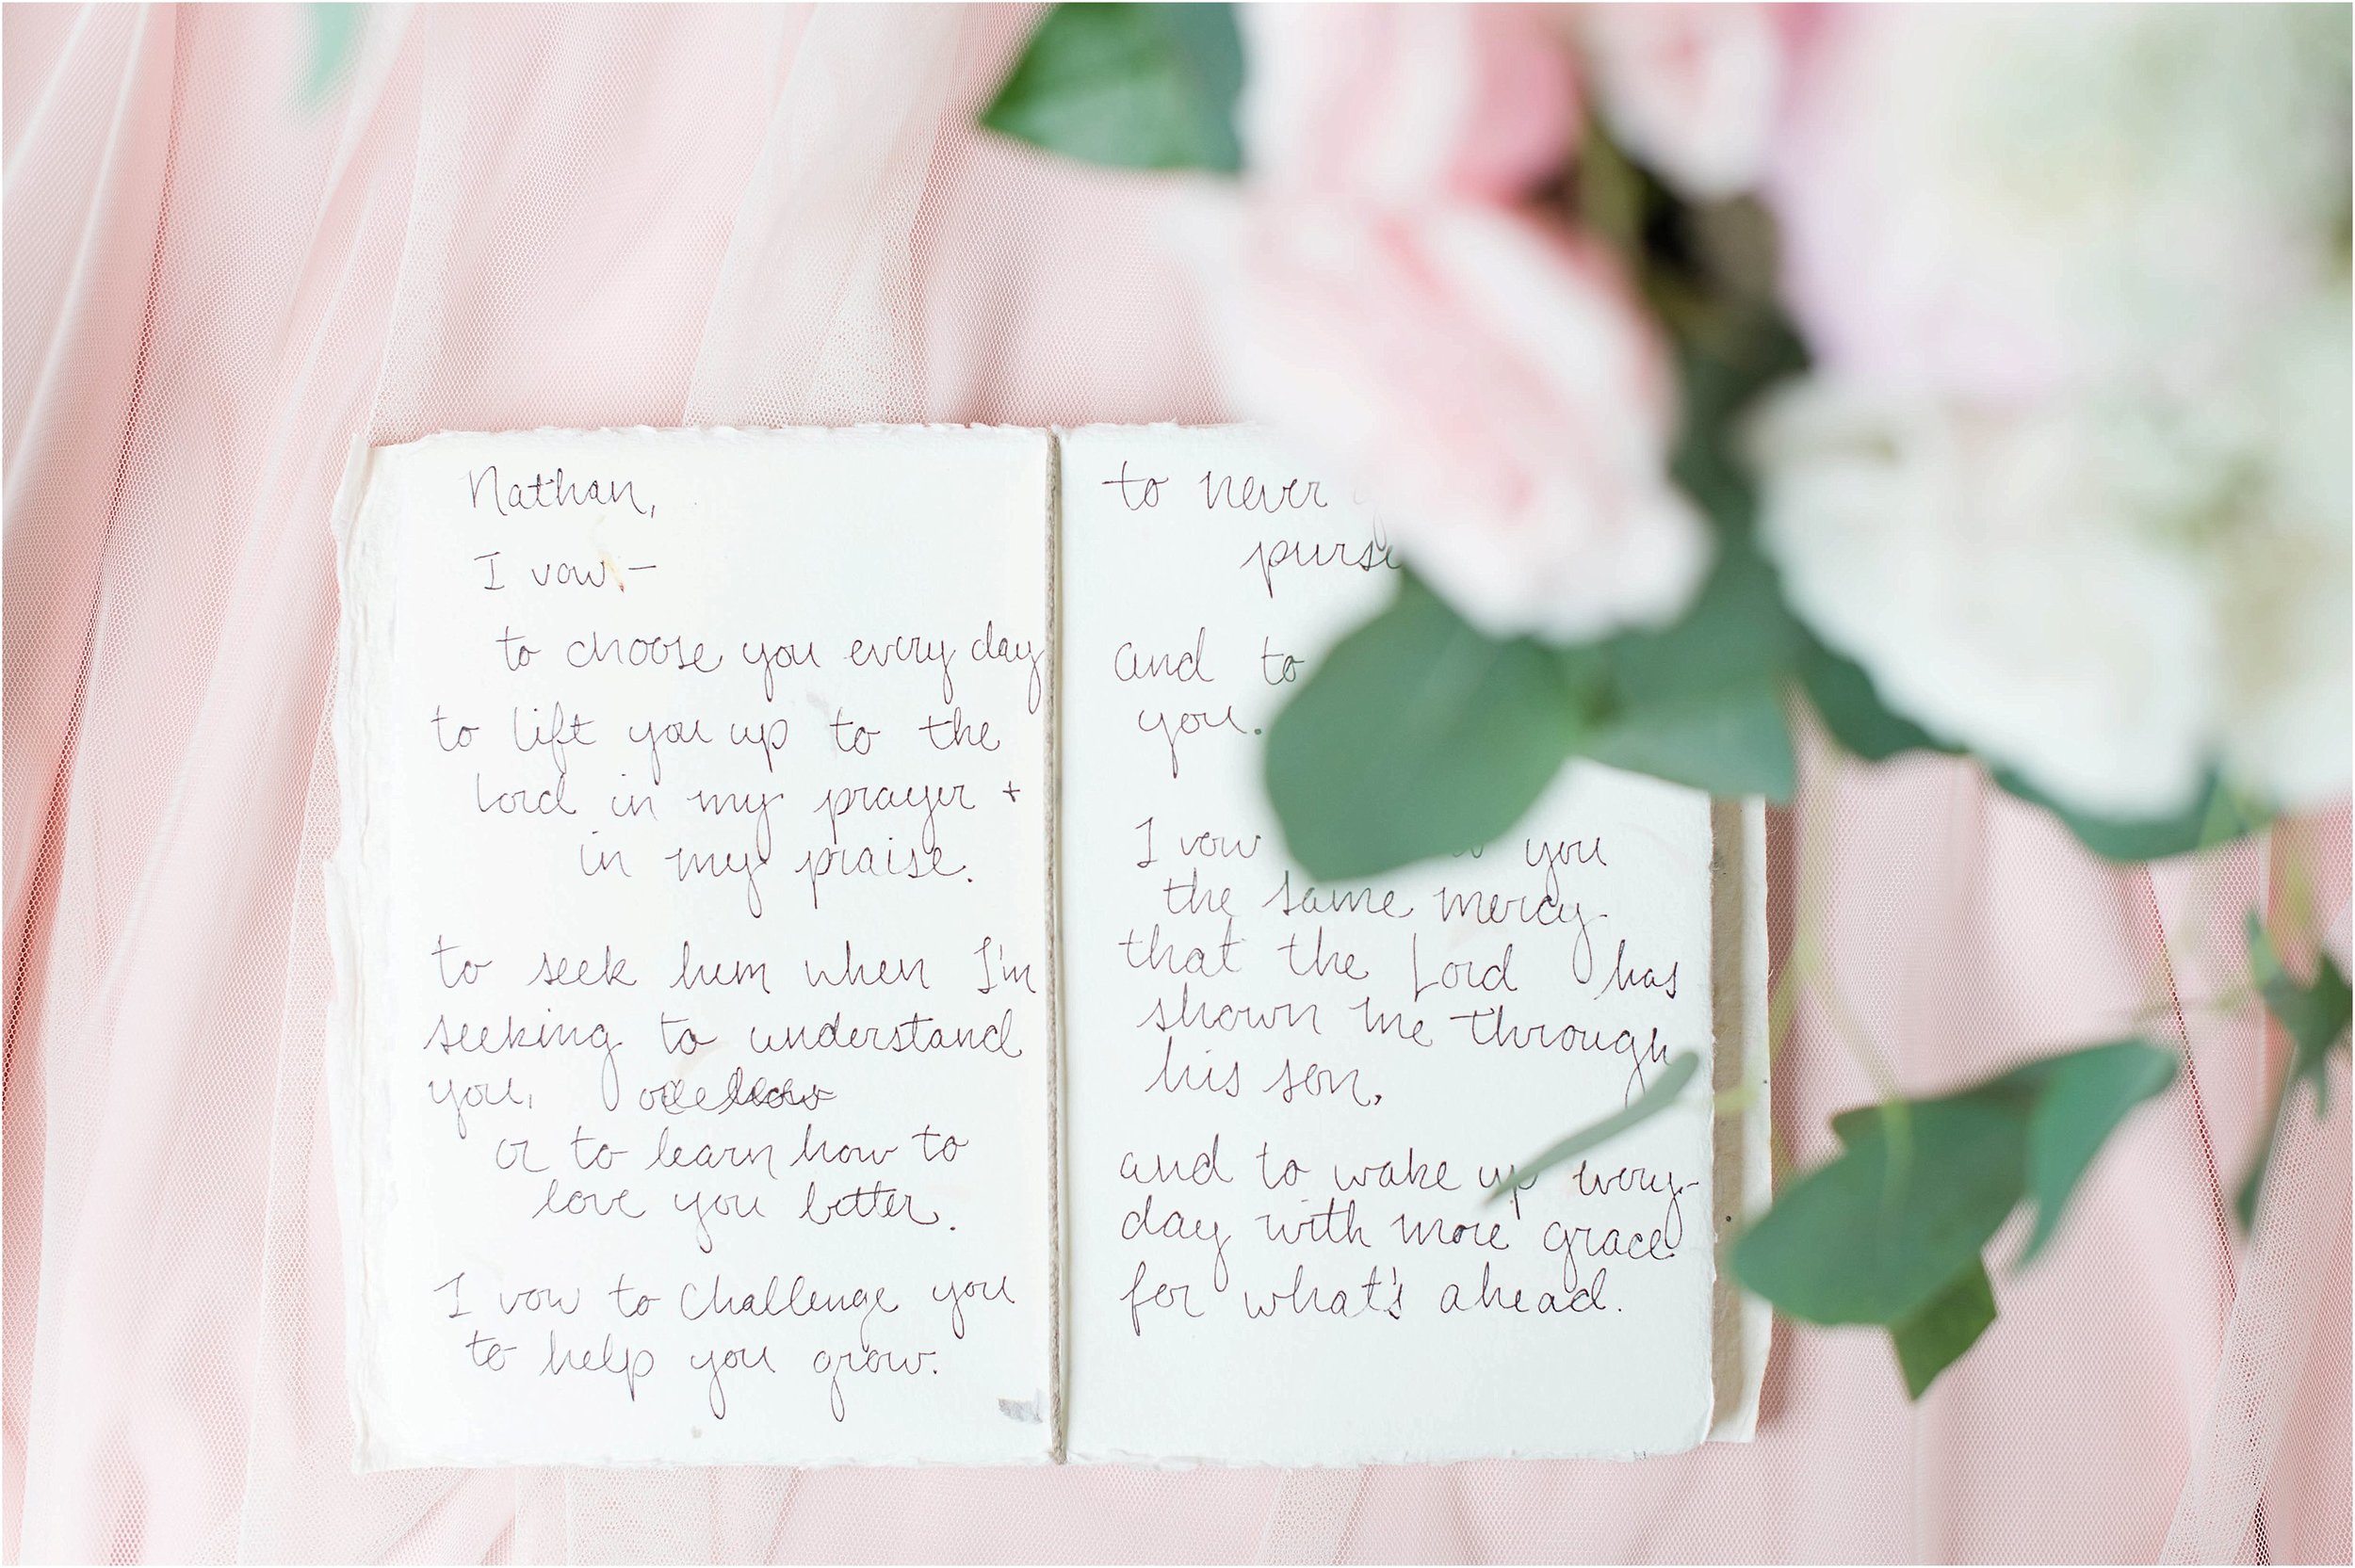 Nathan,
I vow –
to choose you every day
to lift you up to the
Lord in my prayer +
in my praise.
to seek him when I'm
seeking to understand
you,
or to learn how to
love you better.
I vow to challenge you
to help you grow.
to never
and to
you.
I vow you
the same mercy
that the Lord has
shown me through
his son,
and to wake up every-
day with more grace
for what's ahead.